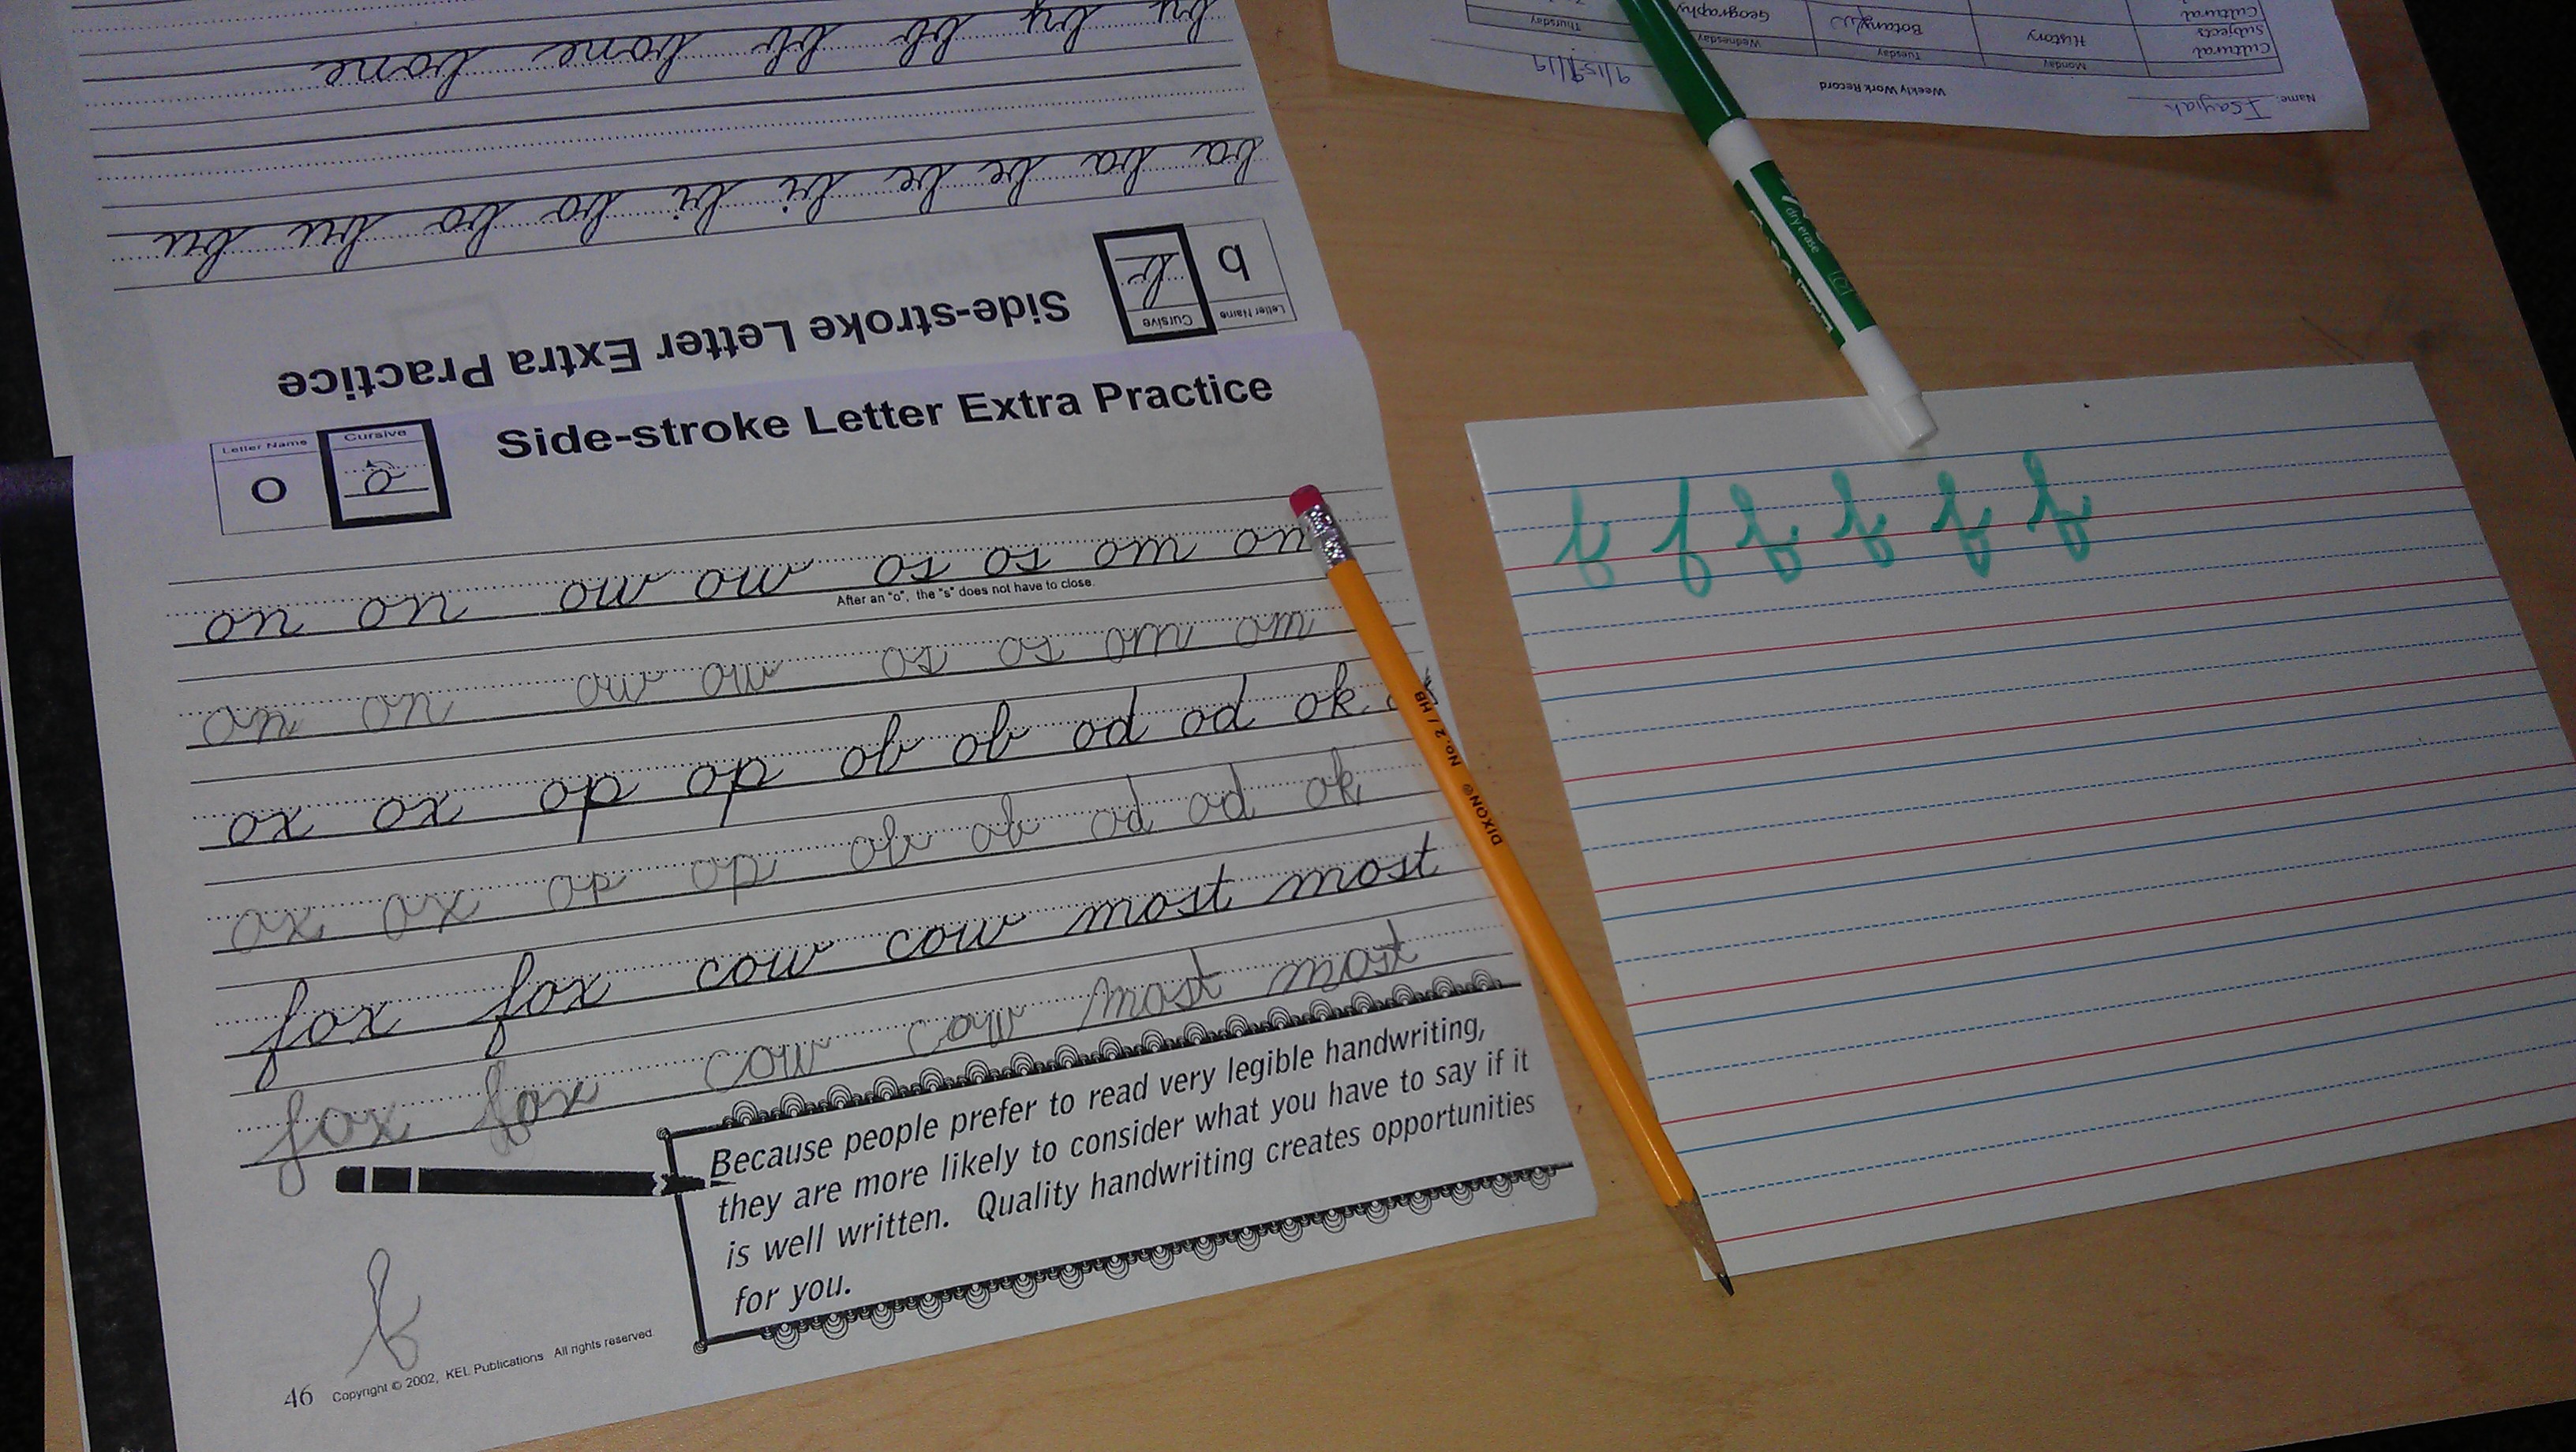 Name: Isayiah
Weekly Work Record
9/15 9/19
Monday Tuesday Wednesday Thursday
Cultural Subjects History Botany Geography
Cultural
bone bone
ba ba be be bi bi bo bo bu bu
Letter Name Cursive
b b
Side-stroke Letter Extra Practice
Side-stroke Letter Extra Practice
Letter Name Cursive
o o
on on ow ow os os om om
After an "o", the "s" does not have to close.
on on ow ow os os om om
ox ox op op ob ob od od ok
ox ox op op ob ob od od ok
fox fox cow cow most most
fox fox cow cow most most
Because people prefer to read very legible handwriting,
they are more likely to consider what you have to say if it
is well written. Quality handwriting creates opportunities
for you.
f
46 Copyright © 2002, KEL Publications All rights reserved.
dry erase
DIXON® No. 2 / HB
f f f f f f